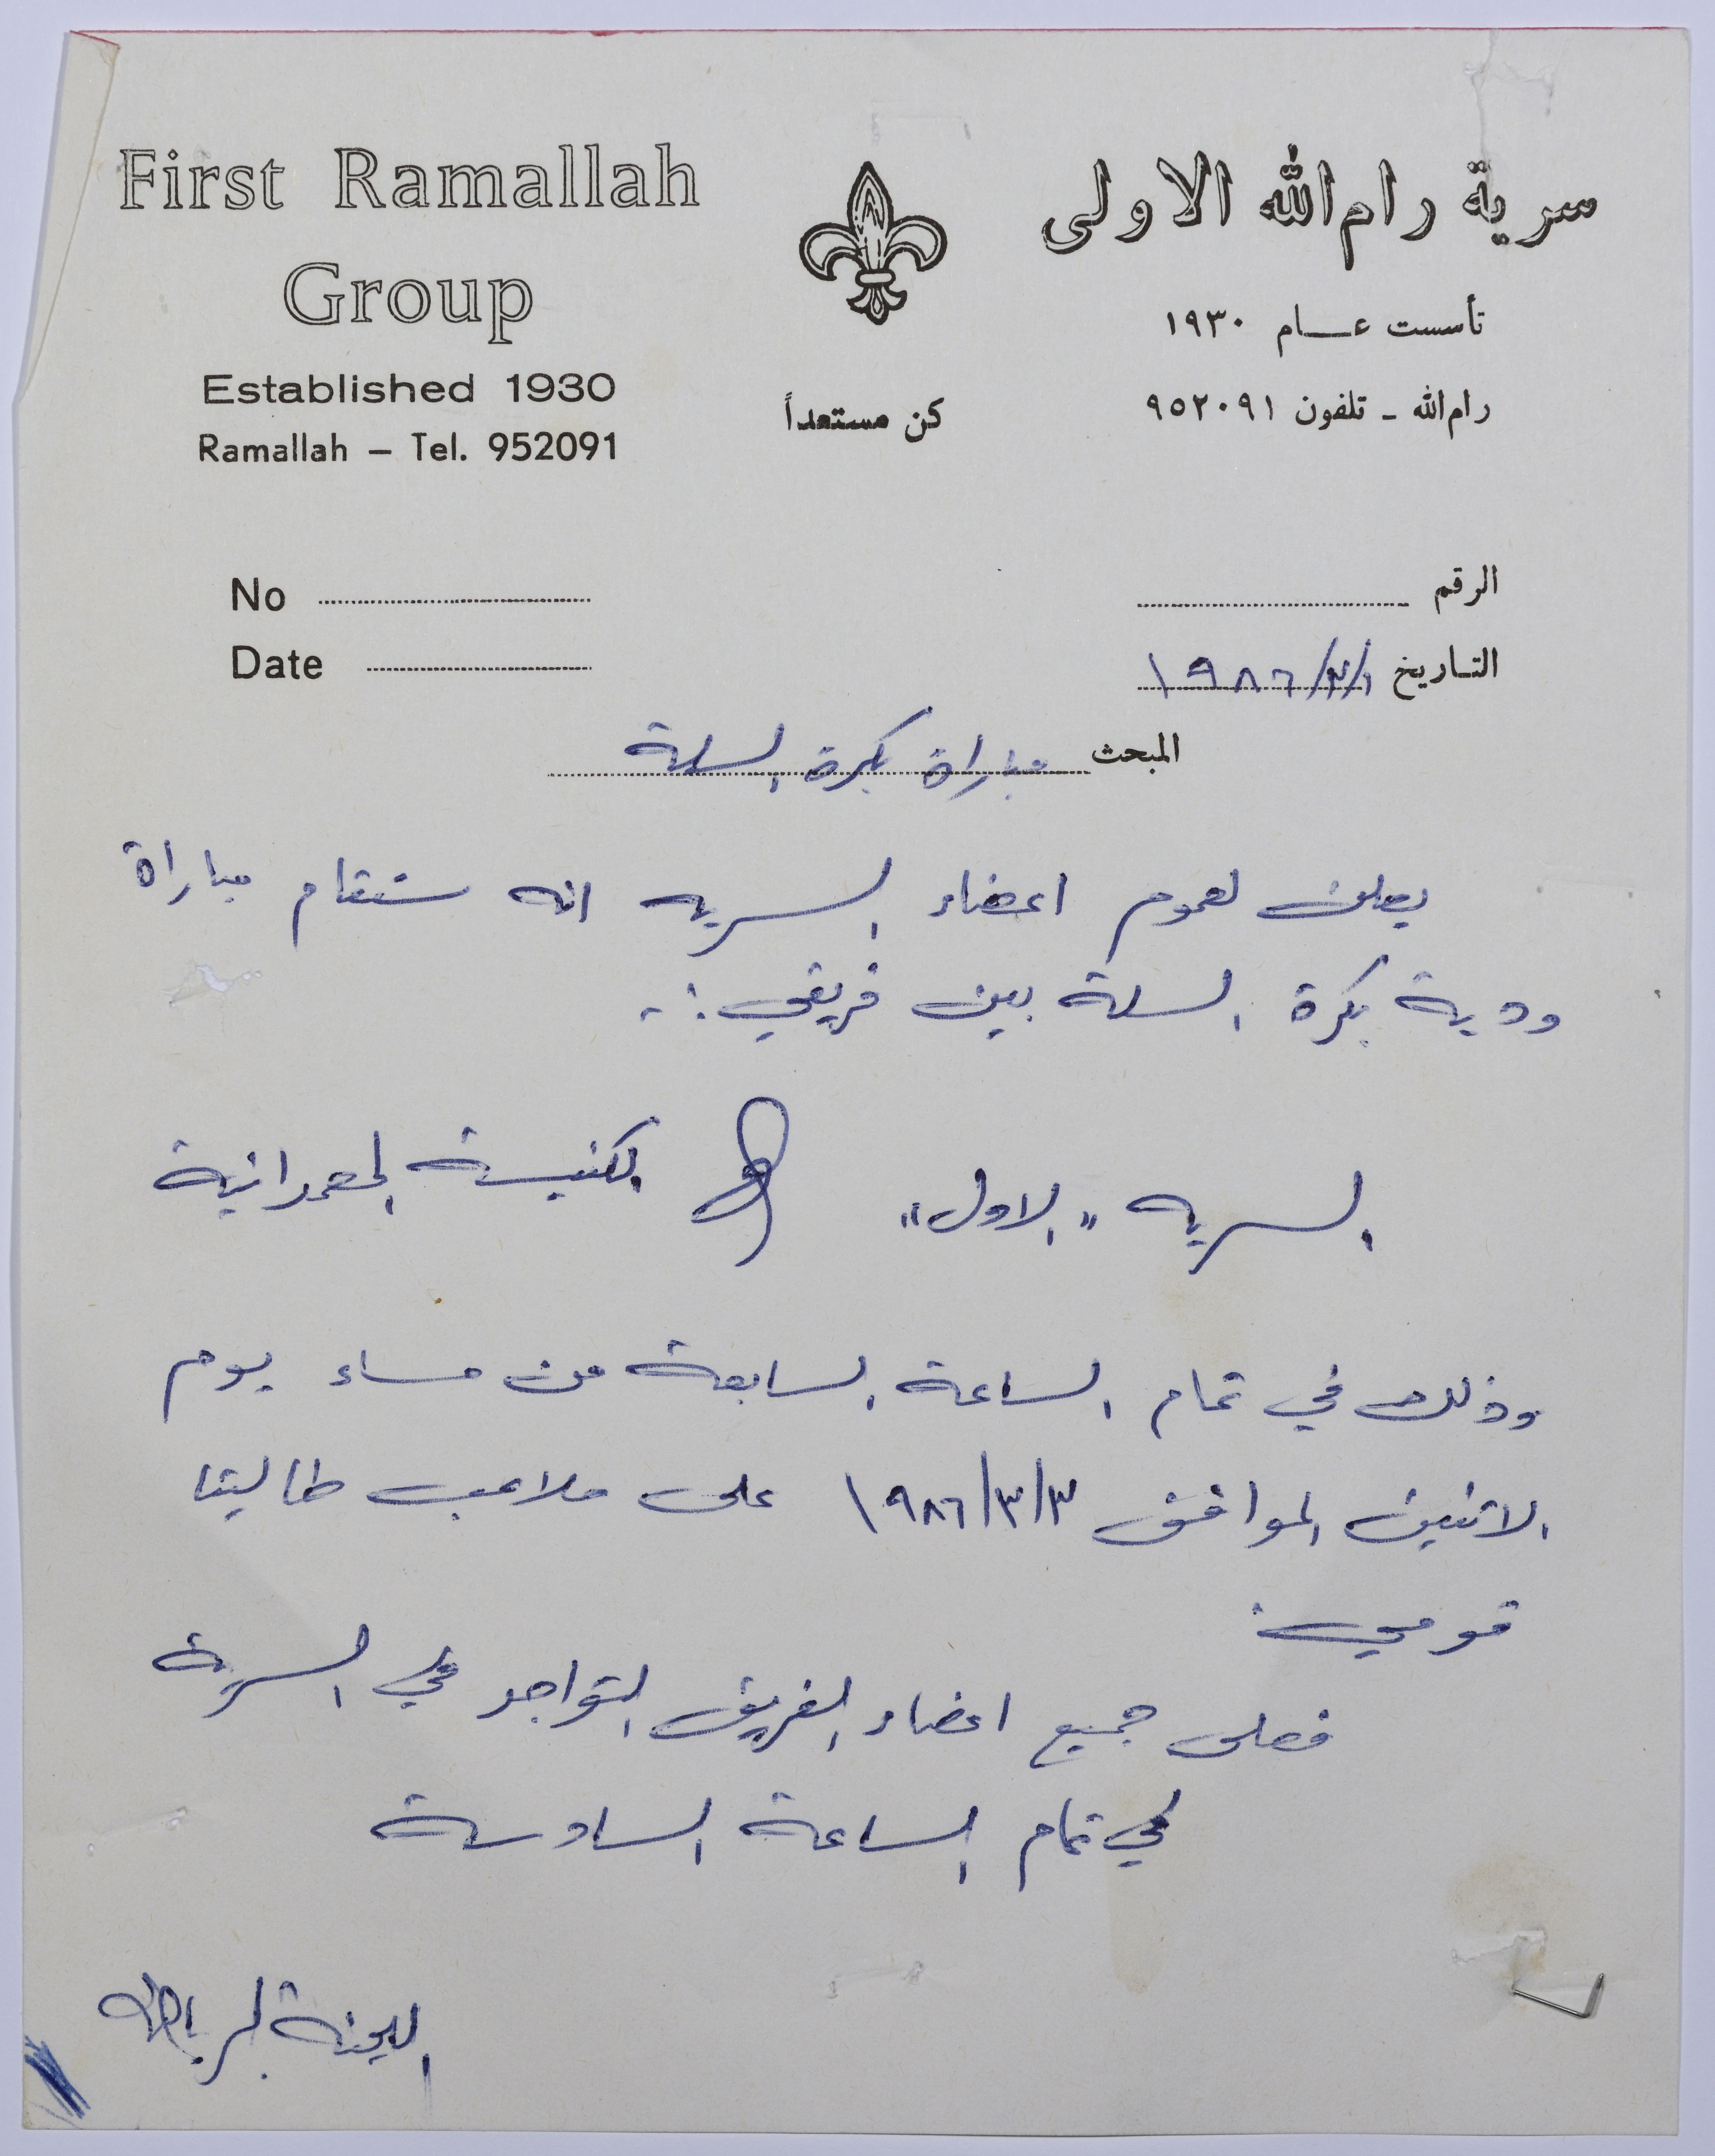 First Ramallah
Group
Established 1930
Ramallah – Tel. 952091
كن مستعداً
سرية رام الله الاولى
تأسست عـــام ١٩٣٠
رام الله ـ تلفون ٩٥٢٠٩١
No
Date
الرقم
التـاريخ ١٩٨٦/٣/١
المبحث مباراة بكرة السلة
يعلن لعموم اعضاء السريه انه ستقام مباراة
ودية بكرة السلة بين فريقي :-
السريه "الاول" الكنيسة المعمدانية
وذلك في تمام الساعة السابعة من مساء يوم
الاثنين الموافق ١٩٨٦/٣/٣ على ملاعب طاليتا
قومي.
فعلى جميع اعضاء الفريق التواجد في السرية
في تمام الساعة السادسة
اللجنة الرياضيه